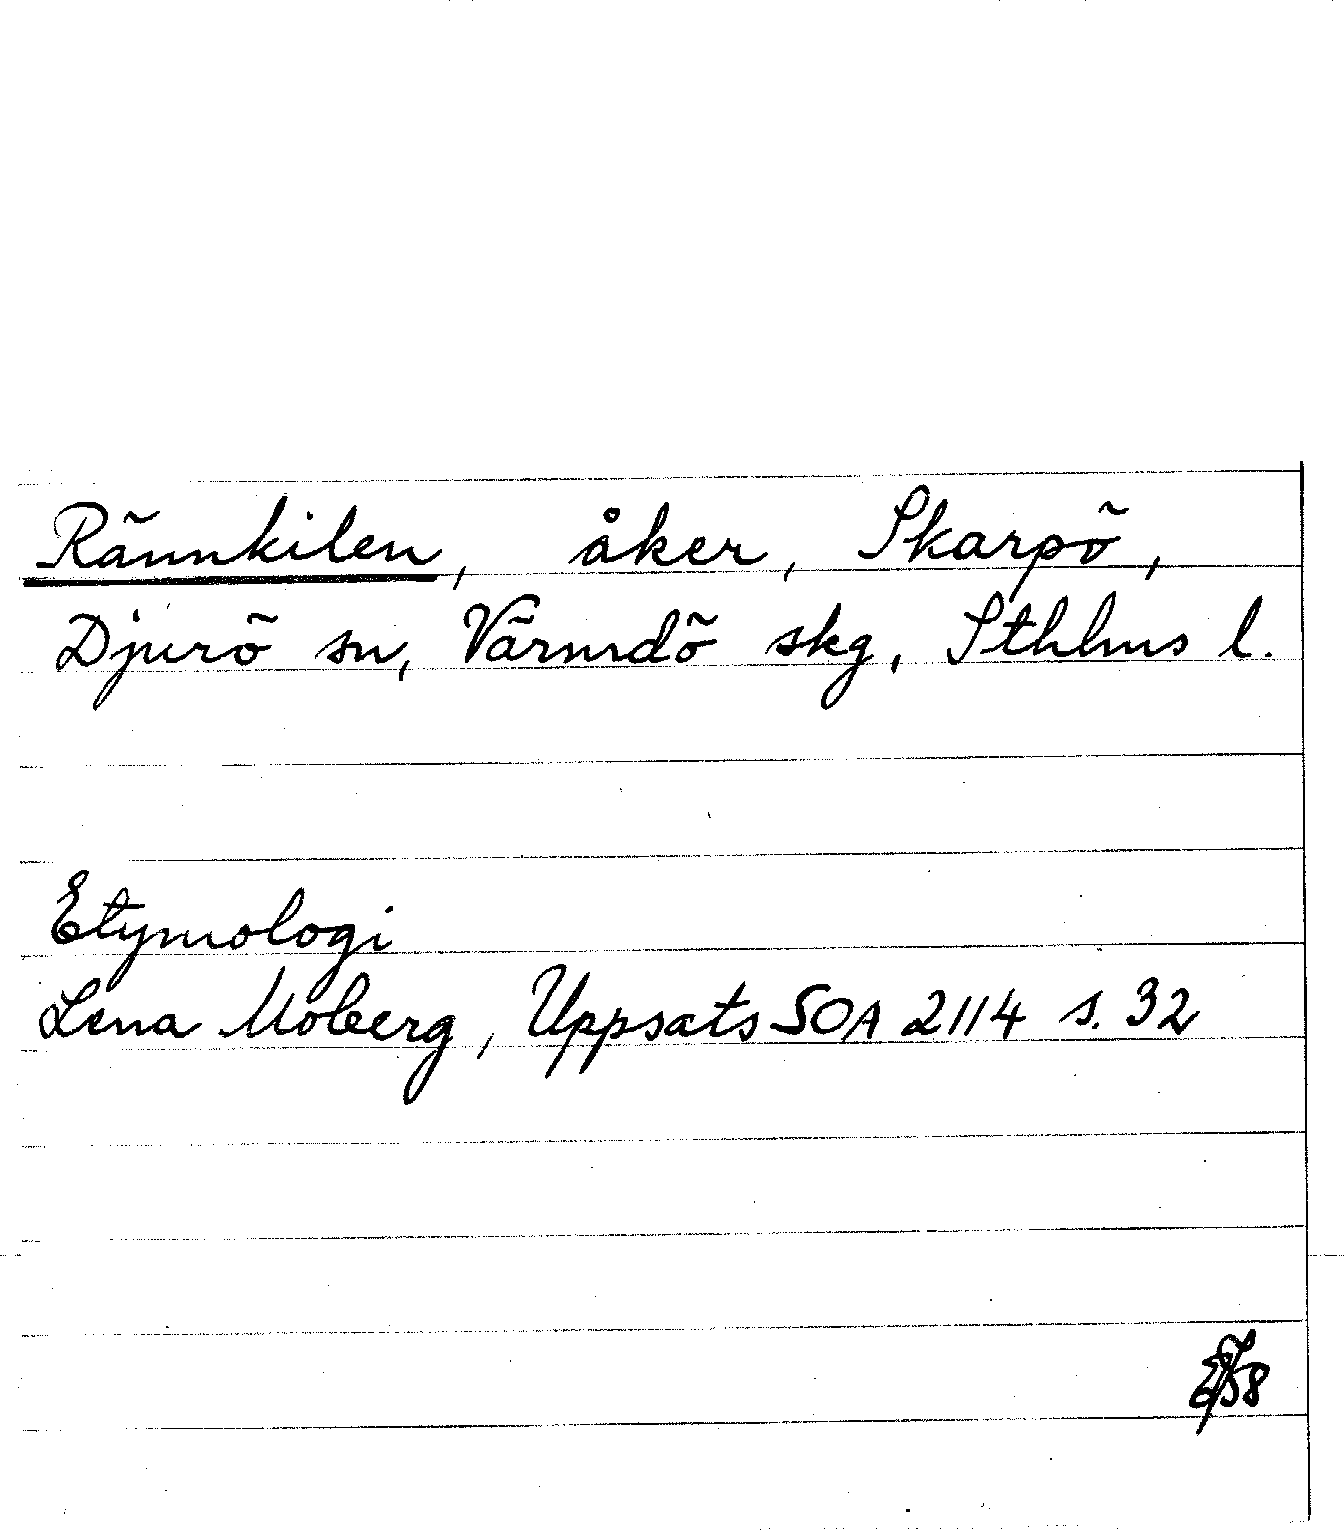 Rännkilen, åker, Skarpö,
Djurö sn, Värmdö skg, Sthlms l.
Etymologi
Lena Moberg, Uppsats SOA 2114 s. 32